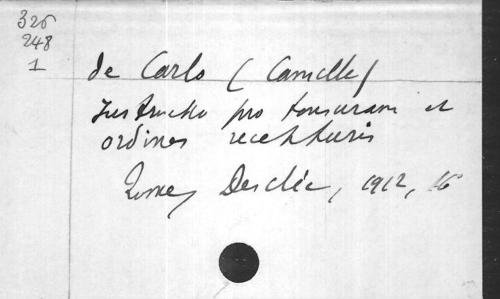 326
248
1
de Carlo (Camille)
Instructio pro tonsuram et
ordines recepturis
Rome, Desclée, 1912, 16°